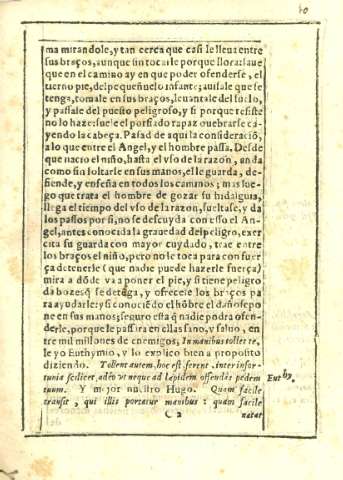 10
ma mirandole, y tan cerca que casi le lleua entre
sus braços, aunque sin tocarle porque llora: laue
que en el camino ay en que poder ofenderse, el
tierno pie, del pequeñuelo infante; auisale que se
tenga, tomale en sus braços, leuantale del suelo,
y passale del puesto peligroso, y si porque resiste
no lo haze: suele el porfiado rapaz quebrarse ca-
yendo la cabeça. Passad de aqui la consideraciō,
a lo que entre el Angel, y el hombre passa. Desde
que nacio el niño, hasta el vso de la razon, anda
como sin soltarle en sus manos, el le guarda, de-
fiende, y enseña en todos los caminos; mas lue-
go que trata el hombre de gozar su hidalguia,
llega el tiempo del vso de la razon, sueltase, y da
los passos por si, no se descuyda con esso el An-
gel, antes conocida la grauedad del peligro, exer
cita su guarda con mayor cuydado, trae entre
los braços el niño, pero no le toca para con fuer
ça detenerle (que nadie puede hazerle fuerça)
mira a dōde va a poner el pie, y si tiene peligro
da bozes q̄ se detēga, y ofrecele los braços pa
ra ayudarle: y si conociēdo el hōbre el daño se po
ne en sus manos; seguro esta q̄ nadie podra ofen-
derle, porque le passira en ellas sano, y saluo, en
tre mil millones de enemigos; In manibus tollet te,
le yo Euthymio, y lo explico bien a proposito
diziendo. Tollent autem, hoc est, ferent, inter infor-
tunia scilicet, adeò vt neque ad lapidem offendas pedem
tuum. Y mejor nuestro Hugo. Quam facile
transit, qui illis portatur manibus: quàm facile
Euthy.
C 2
natat